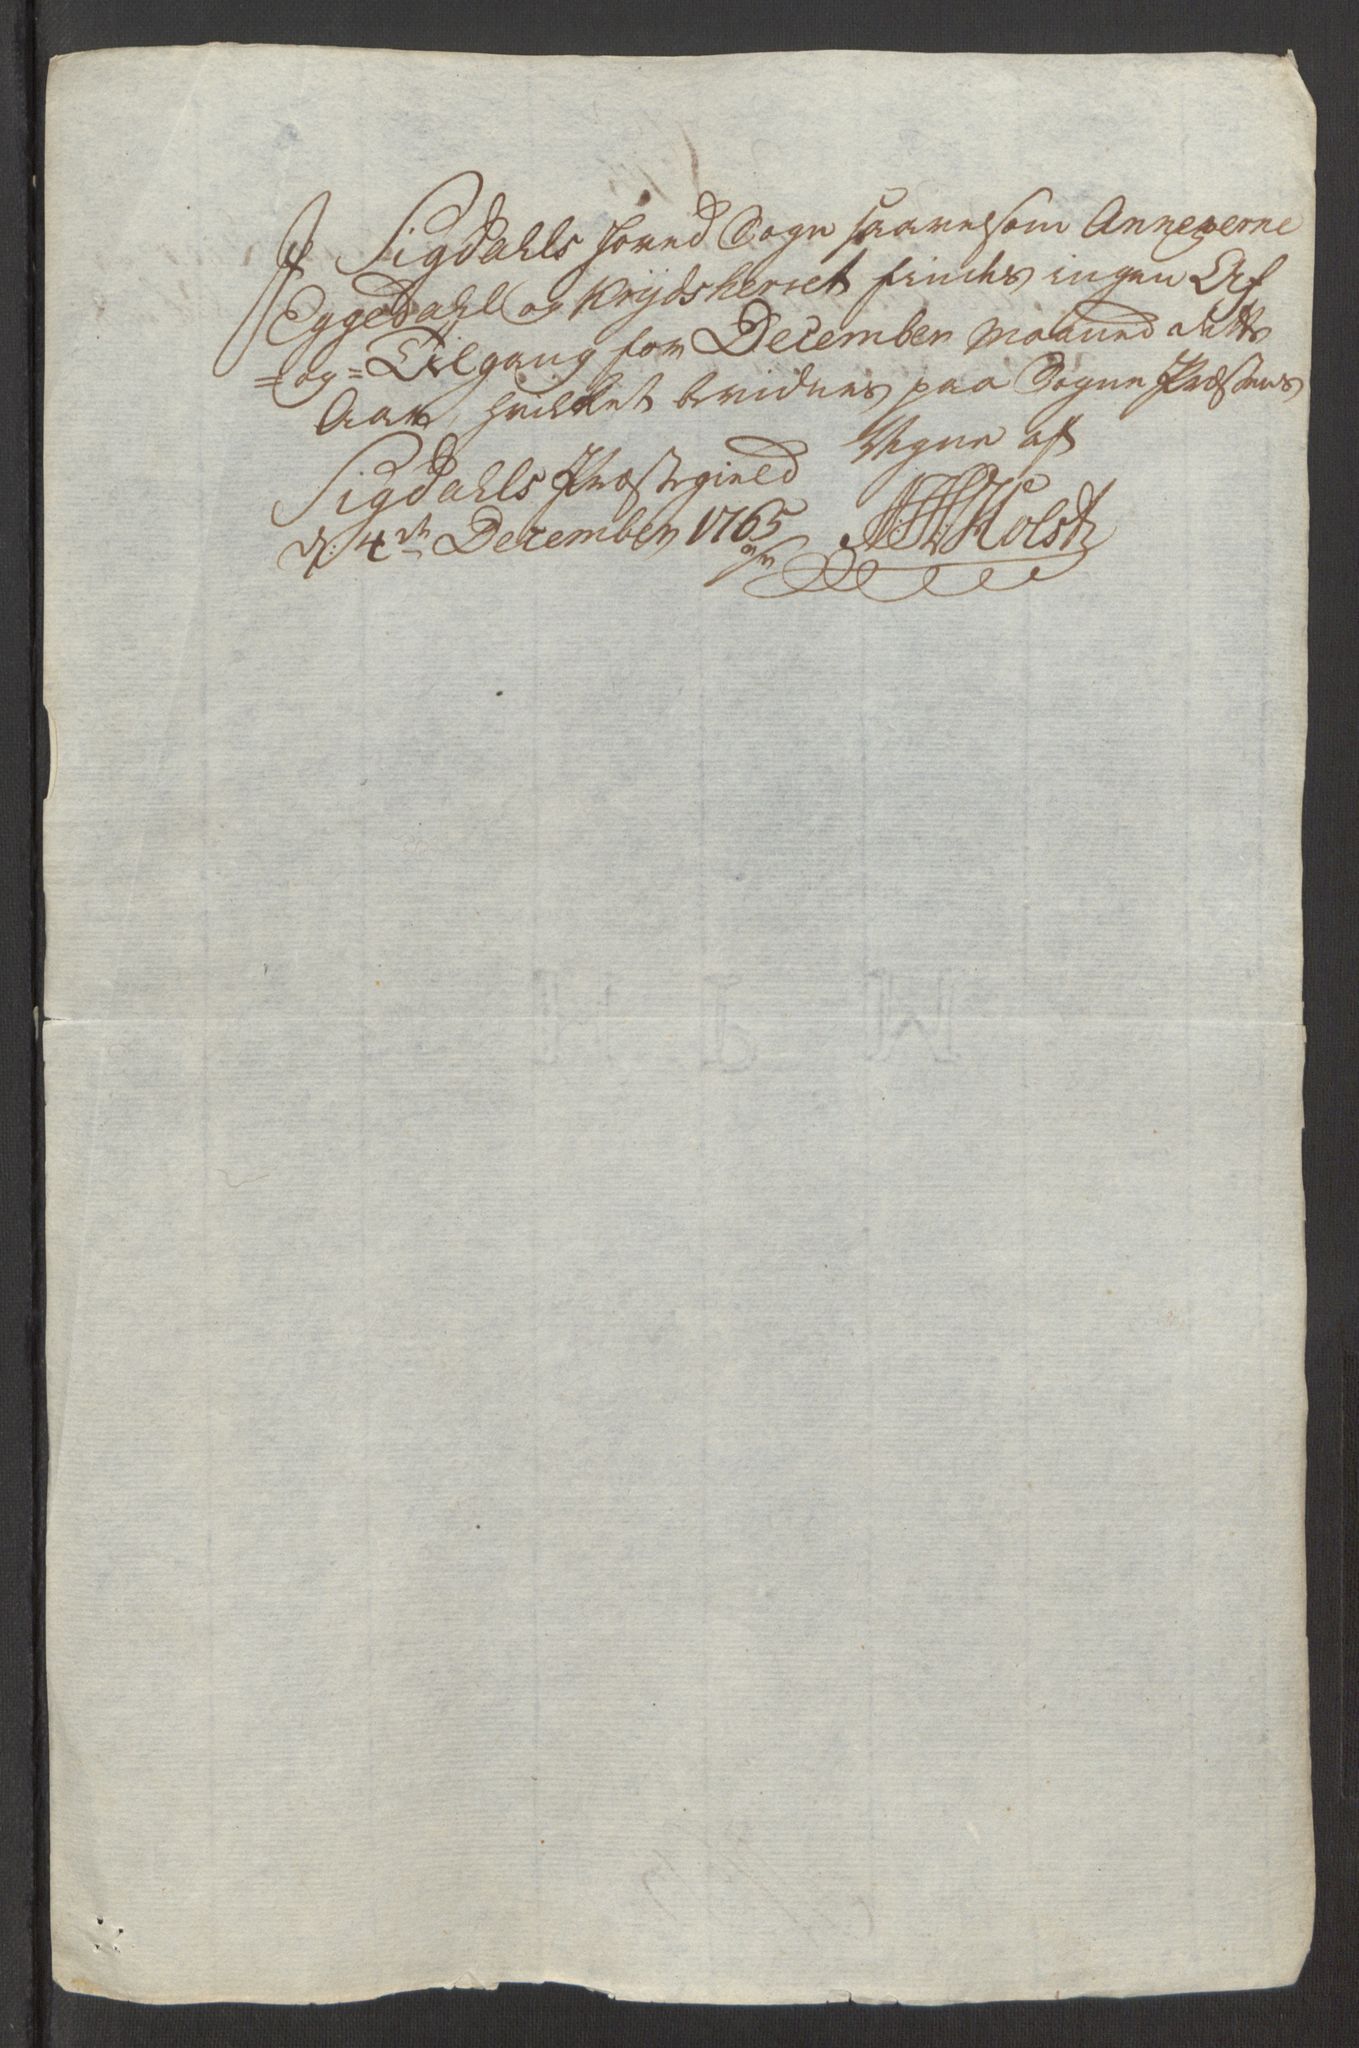 I Sigdahls Hoved Sogn saavelsom Annexerne
Eggedahl og Krydsherret findes ingen Af
=og= Tilgang for December Maaned dette
Aar, hvilket bevidnes paa Sogne Præstens
Vegne af
Sigdahls Præstegield
d: 4de December 1765
Holst